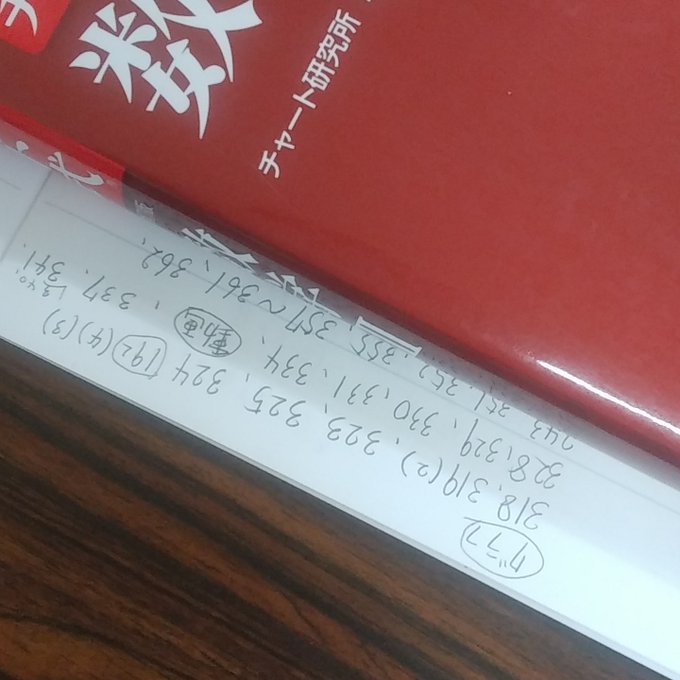 数
チャート研究所
グラフ
318, 319(2), 323, 325, 324 192 (4)(3)
328, 329, 330, 331, 334, 動画, 337, 341.
343, 351, 352, 355, 357～361, 362,